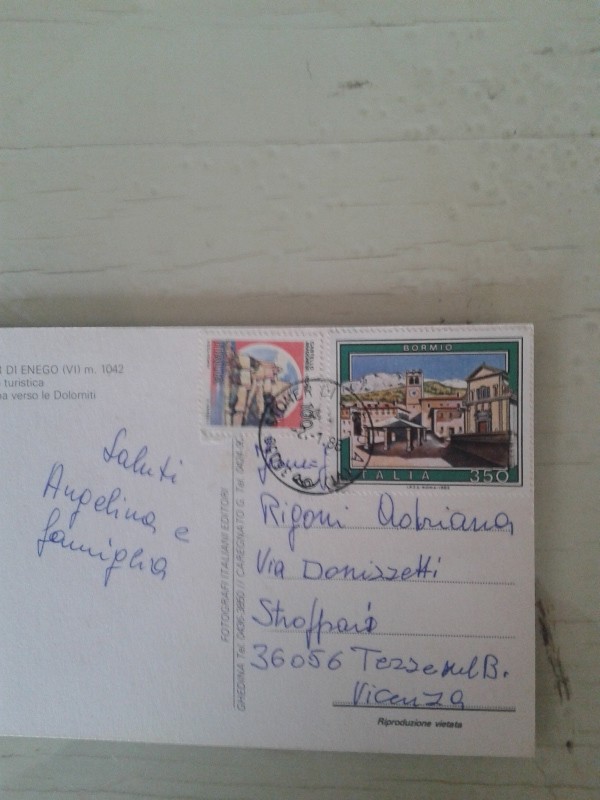 DI ENEGO (VI) m. 1042
turistica
verso le Dolomiti
Saluti
Angelina e
famiglia
FOTOGRAFI ITALIANI EDITORI
GHEDINA Tel. 0436-3850 // CAREGNATO G. Tel. 0424
BORMIO
ITALIA 350
Rigoni Adriana
Via Donizzetti
Stroppari
36056 Tezze sul B.
Vicenza
Riproduzione vietata